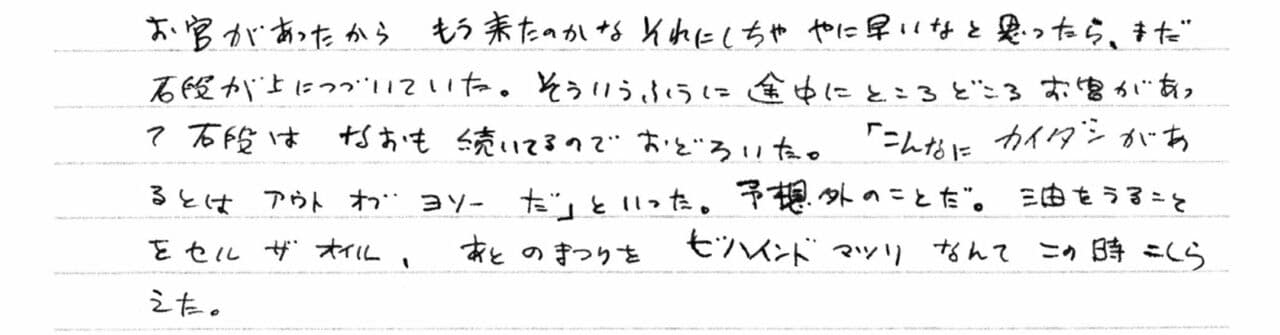 お宮があったから もう来たのかな それにしちゃ やに早いなと思ったら、まだ
石段が上につづいていた。そういうふうに途中にところどころお宮があっ
て石段は なおも 続いてるのでおどろいた。「こんなに カイダンがあ
るとは アウト オブ ヨソー だ」といった。予想外のことだ。油をうること
をセル ザ オイル、 あとのまつりを ビハインド マツリ なんて この時こしら
えた。